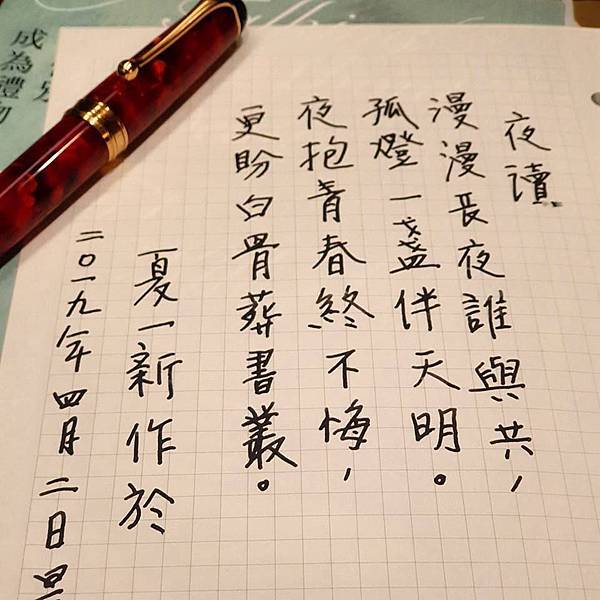 夜讀
漫漫長夜誰與共,
孤燈一盞伴天明。
夜抱青春終不悔,
更盼白骨葬書叢。
夏一新作於
二〇一九年四月二日
成為禮物